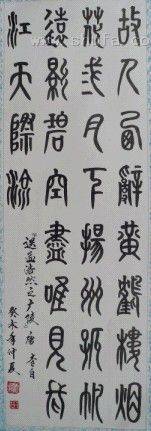 故人西辭黄鶴樓烟
花弎月下揚州孤帆
遠影碧空盡唯見長
江天際流
"送孟浩然之广陵"唐 李白
癸未年仲夏